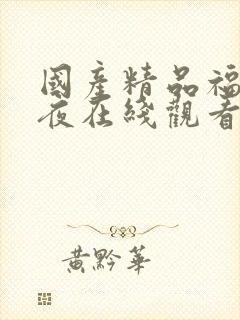 國產精品福
夜在綫觀看
黃黔華